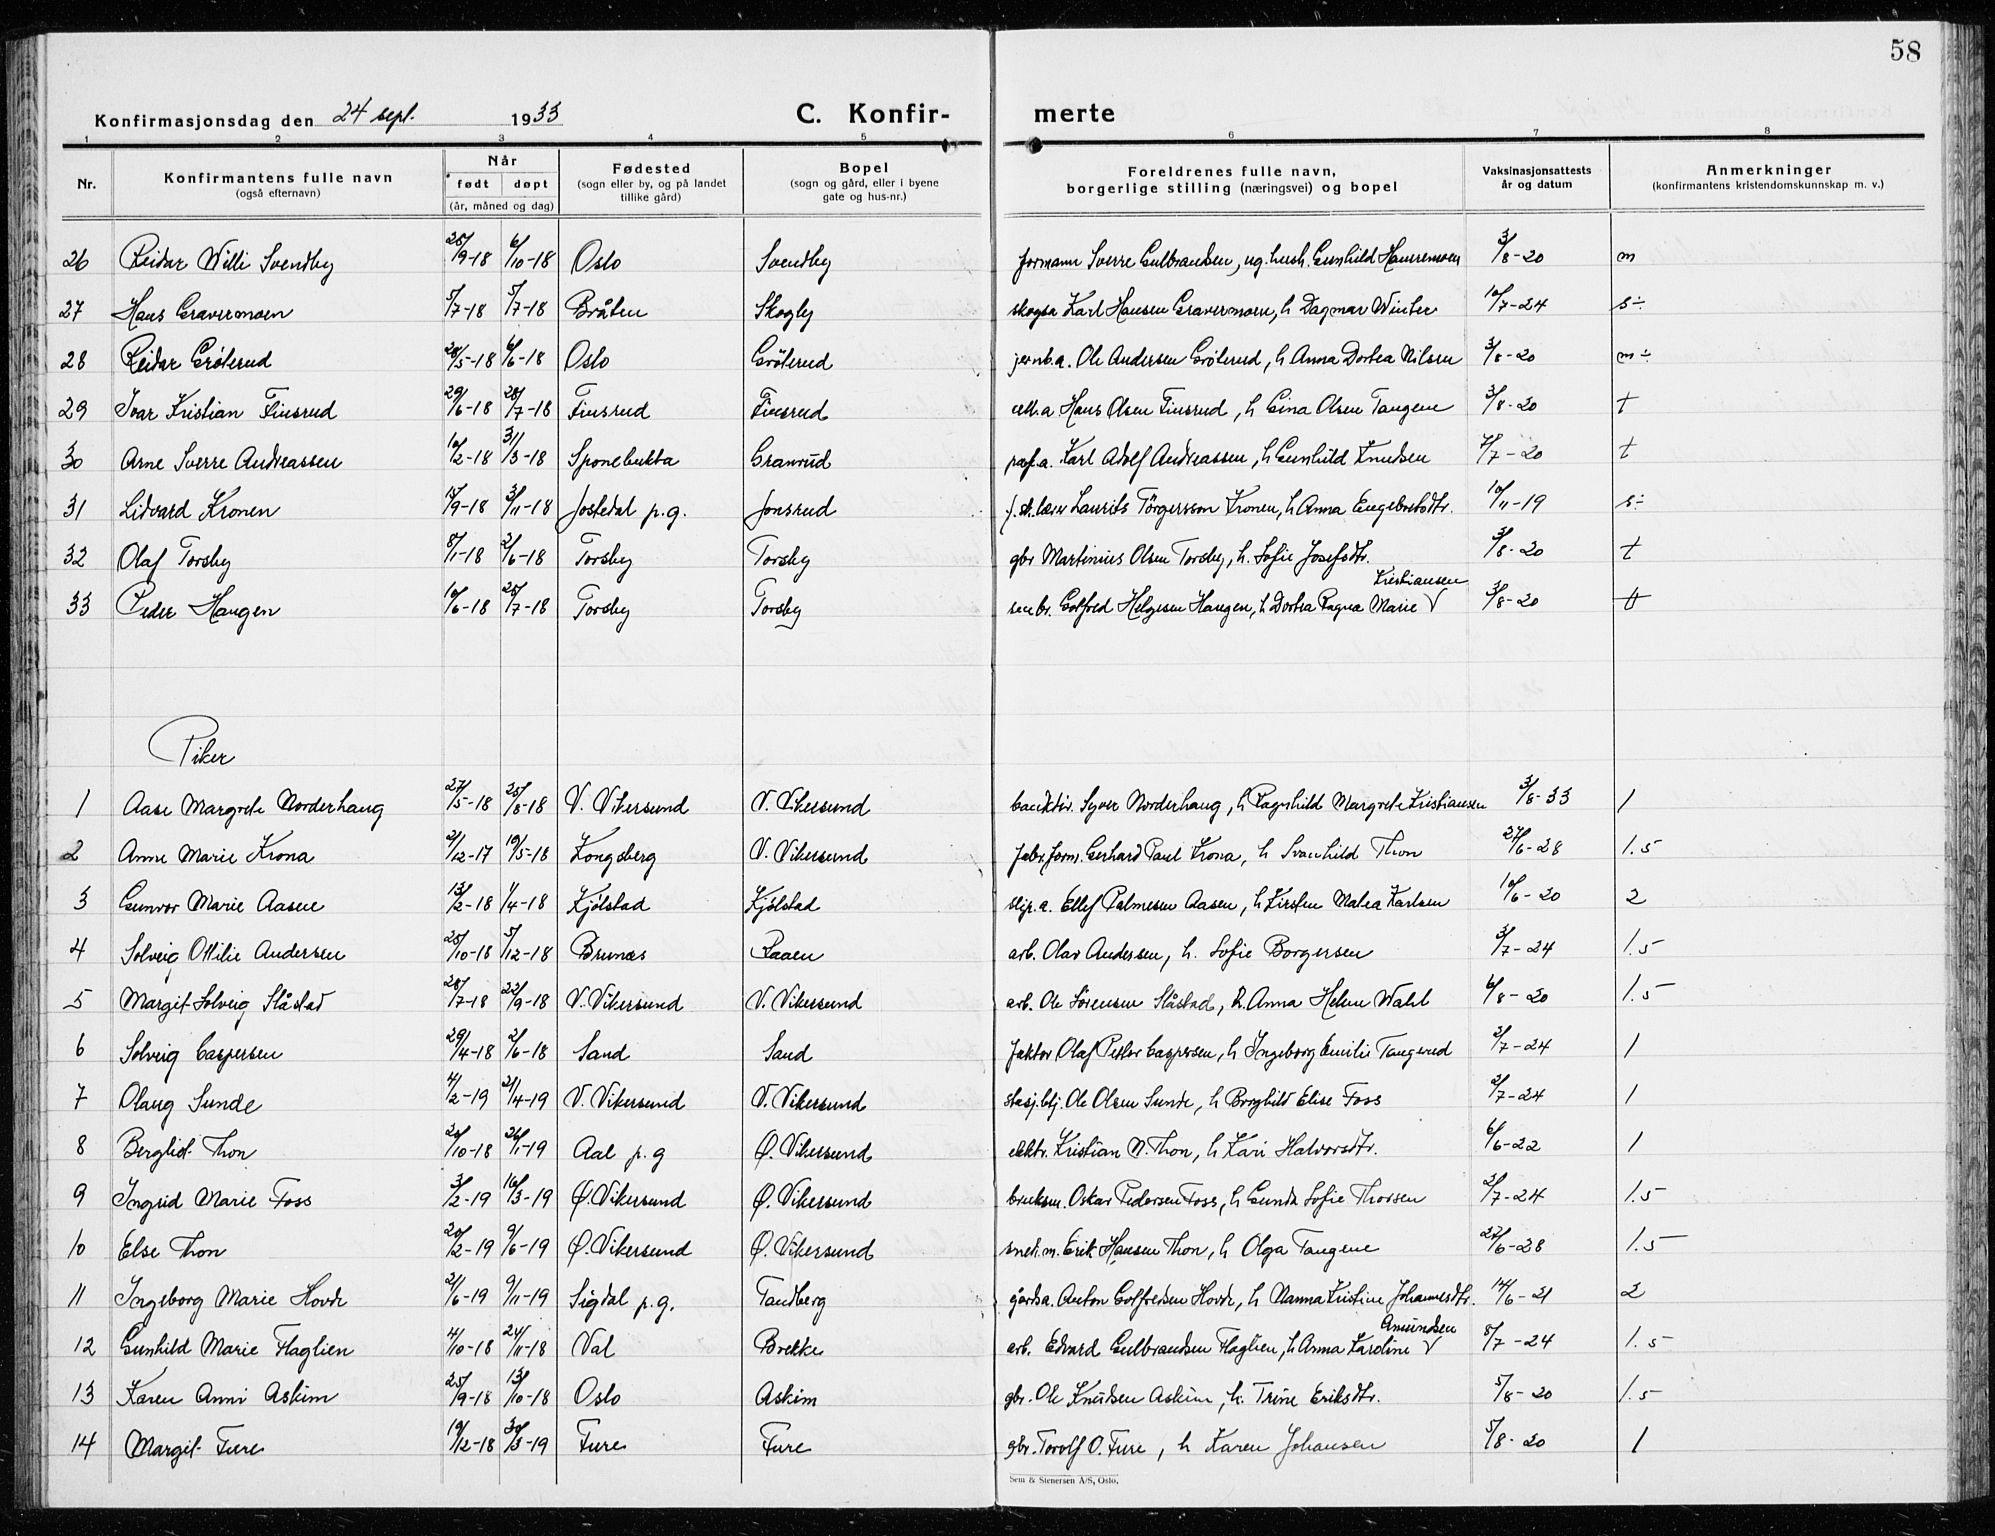 58
Konfirmasjonsdag den 24 sept. 1933 C. Konfir- merte
1 2 3 4 5 6 7 8
Nr. Konfirmantens fulle navn (også efternavn) Når født døpt (år, måned og dag) Fødested (sogn eller by, og på landet tillike gård) Bopel (sogn og gård, eller i byene gate og hus-nr.) Foreldrenes fulle navn, borgerlige stilling (næringsvei) og bopel Vaksinasjonsattests år og datum Anmerkninger (konfirmantens kristendomskunnskap m. v.)
26 Reidar Willi Svendby 25/9-18 6/10-18 Oslo Svendby formann Sverre Gulbrandsen, ug. hush. Gunhild Hansremoen 3/8-20 m
27 Hans Gravermoen 5/7-18 5/7-18 Bråten Skogly skogsa Karl Hansen Gravermoen, h Dagmar Winter 10/7-24 s÷
28 Reidar Gröterud 28/5-18 6/6-18 Oslo Gröterud jernb.a. Ole Andersen Gröterud, h Anna Dortea Nilsen 3/8-20 m÷
29 Ivar Kristian Finsrud 29/6-18 28/7-18 Finsrud Finsrud cell.a Hans Olsen Finsrud, h Gina Olsen Tangene 3/8-20 t
30 Arne Sverre Andreassen 10/2-18 31/3-18 Sponebukta Granrud papf.a. Karl Adolf Andreassen, h Gunhild Knudsen 7/7-20 t
31 Lidvard Kronen 15/9-18 3/11-18 Jostedal p.g. Jonsrud f. sk.lærer Laurits Törgersson Kronen, h Anna Engebretsdtr. 10/11-19 s÷
32 Olaf Torsby 8/1-18 2/6-18 Torsby Torsby gbr Martinius Olsen Torsby, h. Sofie Josefsdtr. 3/8-20 t
33 Peder Haugen 10/6-18 28/7-18 Torsby Torsby småbr. Golfred Helgesen Haugen, h Dortea Ragna Marie V Kristiansen 3/8-20 t
Piker
1 Aase Margrete Norderhaug 27/5-18 25/8-18 V. Vikersund V. Vikersund bankdir. Syver Norderhaug, h Ragnhild Margrete Kristiansen 3/8-33 1
2 Anne Marie Krona 21/12-17 19/5-18 Kongsberg V. Vikersund fabr.form. Gerhard Paul Krona, h Svanhild Thon 27/6-28 1.5
3 Gunvor Marie Aasen 13/2-18 1/4-18 Kjölstad Kjölstad slip.a. Ellef Palmesen Aasen, h Kirsten Matea Karlsen 10/6-20 2
4 Solveig Ottilie Andersen 25/10-18 5/12-18 Brunæs Raaen arb. Olav Andersen, h. Sofie Borgersen 3/7-24 1.5
5 Margit Solveig Slåstad 28/7-18 22/9-18 V. Vikersund V. Vikersund arb. Ole Sörensen Slåstad, h. Anna Helene Wahl 6/8-20 1.5
6 Solveig Caspersen 29/4-18 2/6-18 Sand Sand faktor Olaf Petter Caspersen, h Ingeborg Emilie Tangerud 2/7-24 1
7 Olaug Sunde 4/2-19 21/4-19 V. Vikersund V. Vikersund stasj.btj. Ole Olsen Sunde, h Borghild Elise Foss 2/7-24 1
8 Bergliot Thon 20/10-18 26/1-19 Aal p.g Ø. Vikersund elektr. Kristian N. Thon, h Kari Halvorsdtr. 6/6-22 1
9 Ingrid Marie Foss 3/2-19 16/3-19 Ø. Vikersund Ø. Vikersund bruksm. Oskar Pedersen Foss, h Gunda Sofie Thorsen 2/7-24 1.5
10 Else Thon 20/2-19 9/6-19 Ø. Vikersund Ø. Vikersund snek.m. Erik Hansen Thon, h Olga Tangene 27/6-28 1.5
11 Ingeborg Marie Hovde 21/6-19 9/11-19 Sigdal p.g. Tandberg gårdsa. Anton Golfredsen Hovde, h Nanna Kristine Johannesdtr. 14/6-21 2
12 Gunhild Marie Flaglien 4/10-18 24/11-18 Val Brekke arb. Edvard Gulbrandsen Flaglien, h Anna Karoline V Amundsen 8/7-24 1.5
13 Karen Anni Askim 25/9-18 13/10-18 Oslo Askim gbr. Ole Knudsen Askim, h. Trine Eriksdtr. 5/8-20 1.5
14 Margit Fure 19/12-18 30/3-19 Fure Fure gbr. Torolf O. Fure, h Karen Johansen 5/8-20 1
Sem & Stenersen A/S, Oslo.